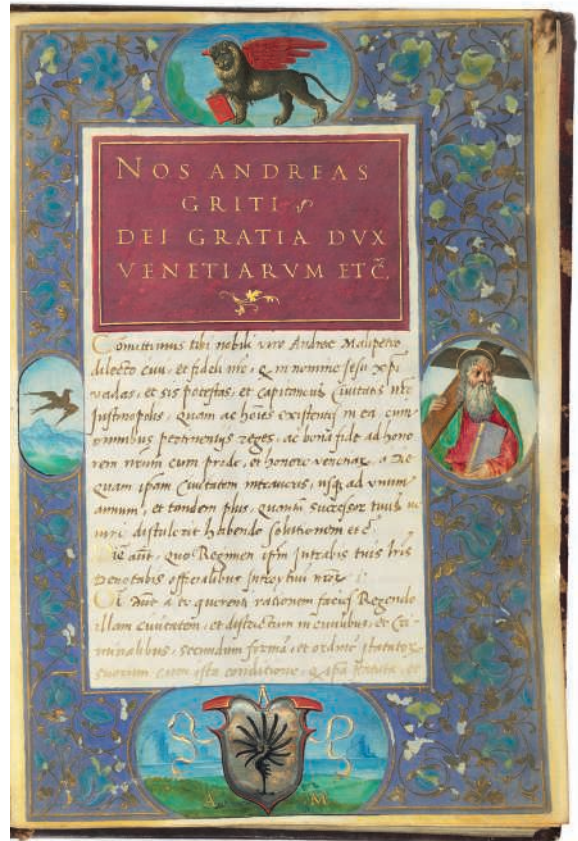 NOS ANDREAS
GRITI
DEI GRATIA DVX
VENETIARVM ETC̃.
Comittimus tibi nobili viro Andreæ Malipetro
dilecto ciui, et fideli nr̃o, q̃ in nomine Jesu xp̃i
vadas, et sis potestas, et capitaneus Ciuitatis nr̃e
Justinopolis, quam ac hoĩes existentes in ea cum
omnibus pertinentijs reges, ac bona fide ad hono
rem nr̃um cum prode, et honore
quam ip̃am Ciuitatem intraueris, usq̃ ad unum
annum, et tandem plus, quantũ successor tuus
distulerit habendo solutionem etc̃.
Die aũt, quo Regimen ip̃m intrabis tuis l̃ris
Denotabis officialibus
aũt a te querenti rationem facies Regendo
illam ciuitatem, et districtum in ciuilibus, et Cri
minalibus, secundum formã, et ordinẽ statutor
suorum cum ista conditione, q̃ ip̃a statuta, et
A
A M